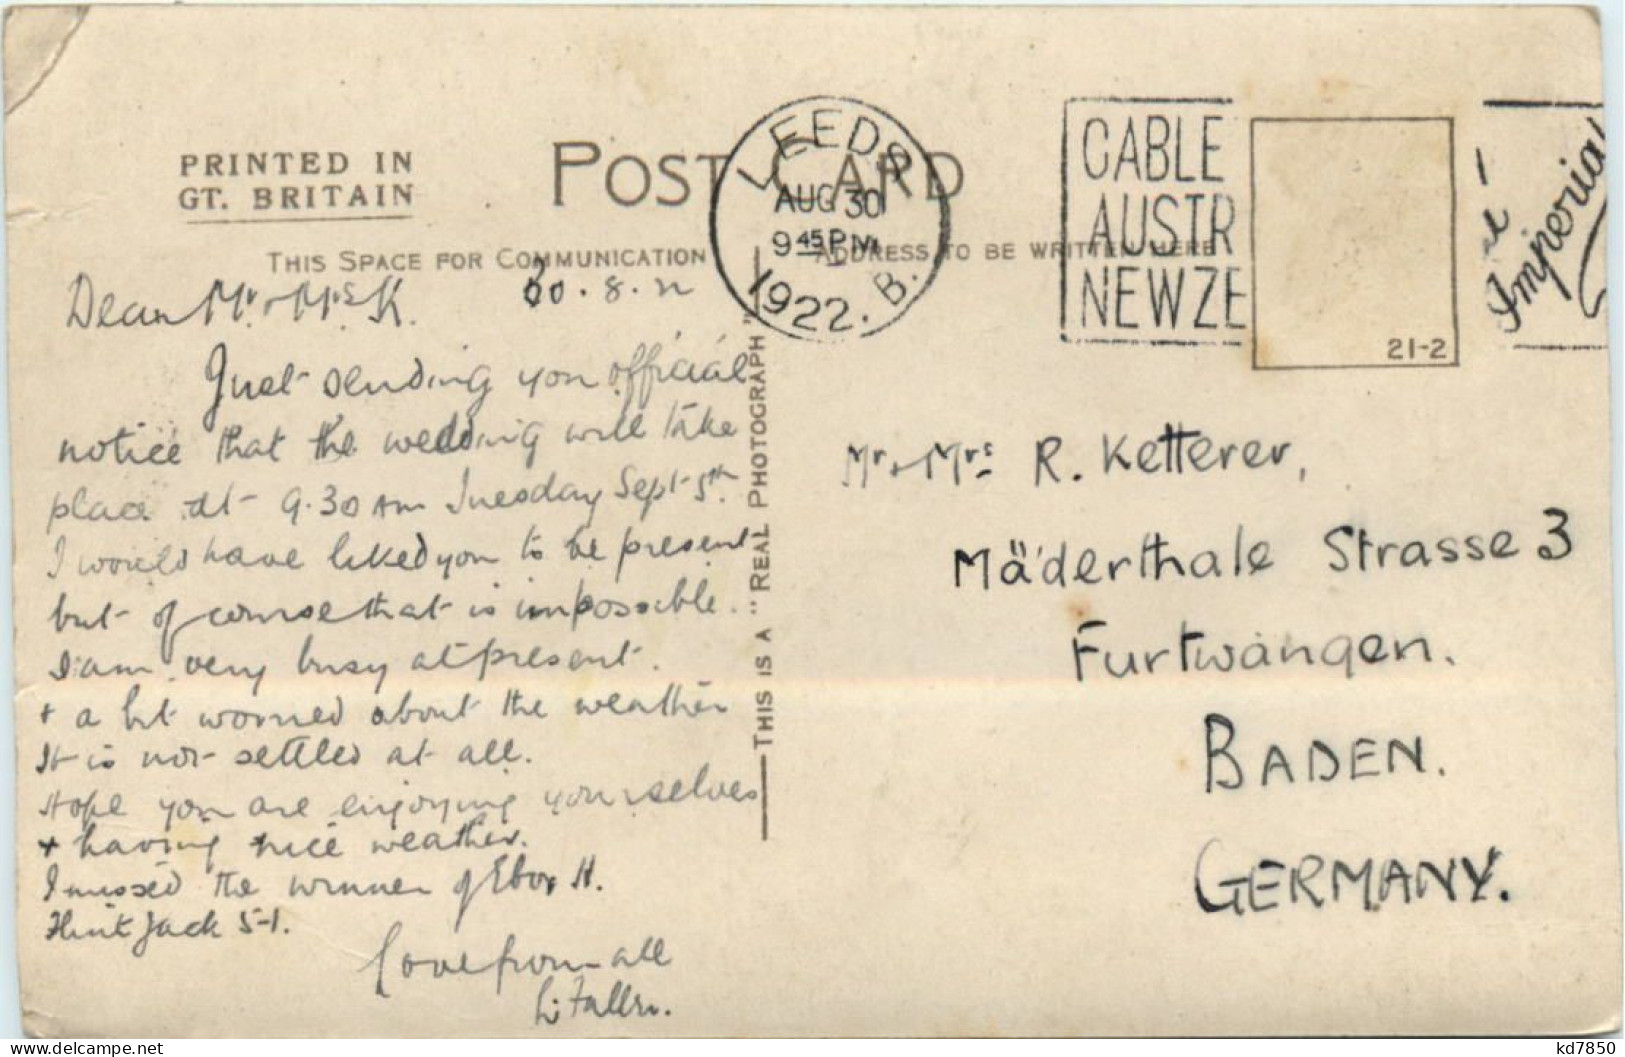 PRINTED IN
GT. BRITAIN
POST CARD
THIS SPACE FOR COMMUNICATION
ADDRESS TO BE WRITTEN HERE
LEEDS
AUG 30
9 45 PM
1922. B.
CABLE
AUSTR
NEW ZE
Imperial
21-2
30.8.22
Dear Mr. & Mrs K.
Just sending you official
notice that the wedding will take
place at 9.30 AM Tuesday Sept 5th.
I would have liked you to be present
but of course that is impossible.
I am very busy at present.
+ a bit worried about the weather
It is not settled at all.
Hope you are enjoying yourselves
+ having nice weather.
I missed the winner of Ebor H.
Flint Jack 5-1.
Love from all
THIS IS A "REAL PHOTOGRAPH"
Mr. & Mrs. R. Ketterer,
Mäderthale Strasse 3
Furtwangen.
BADEN.
GERMANY.
kd7850